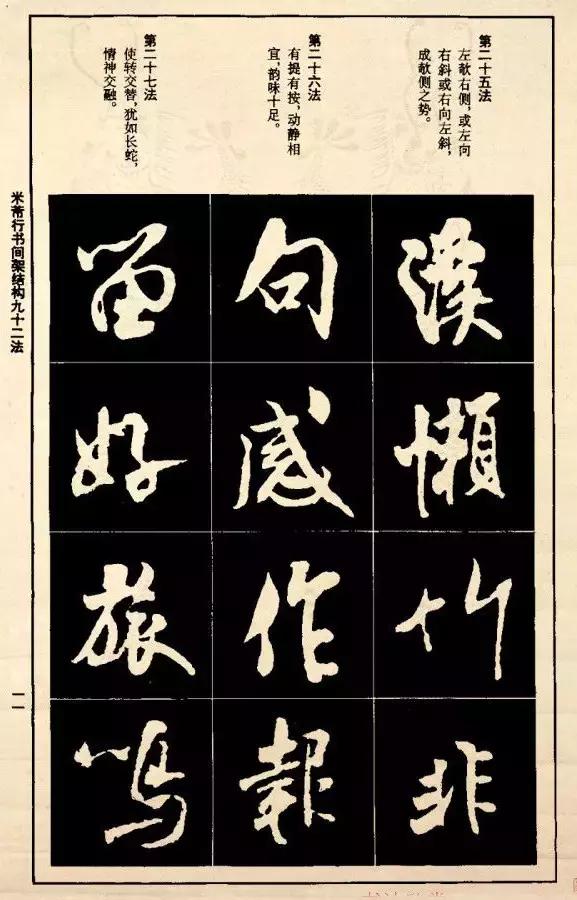 第二十五法
左欹右侧，或左向
右斜或右向左斜，
成欹侧之势。
漢
懶
竹
非
第二十六法
有提有按，动静相
宜，韵味十足。
句
感
作
報
第二十七法
使转交替，犹如长蛇，
情神交融。
留
好
旅
鳴
米芾行书间架结构九十二法
一一